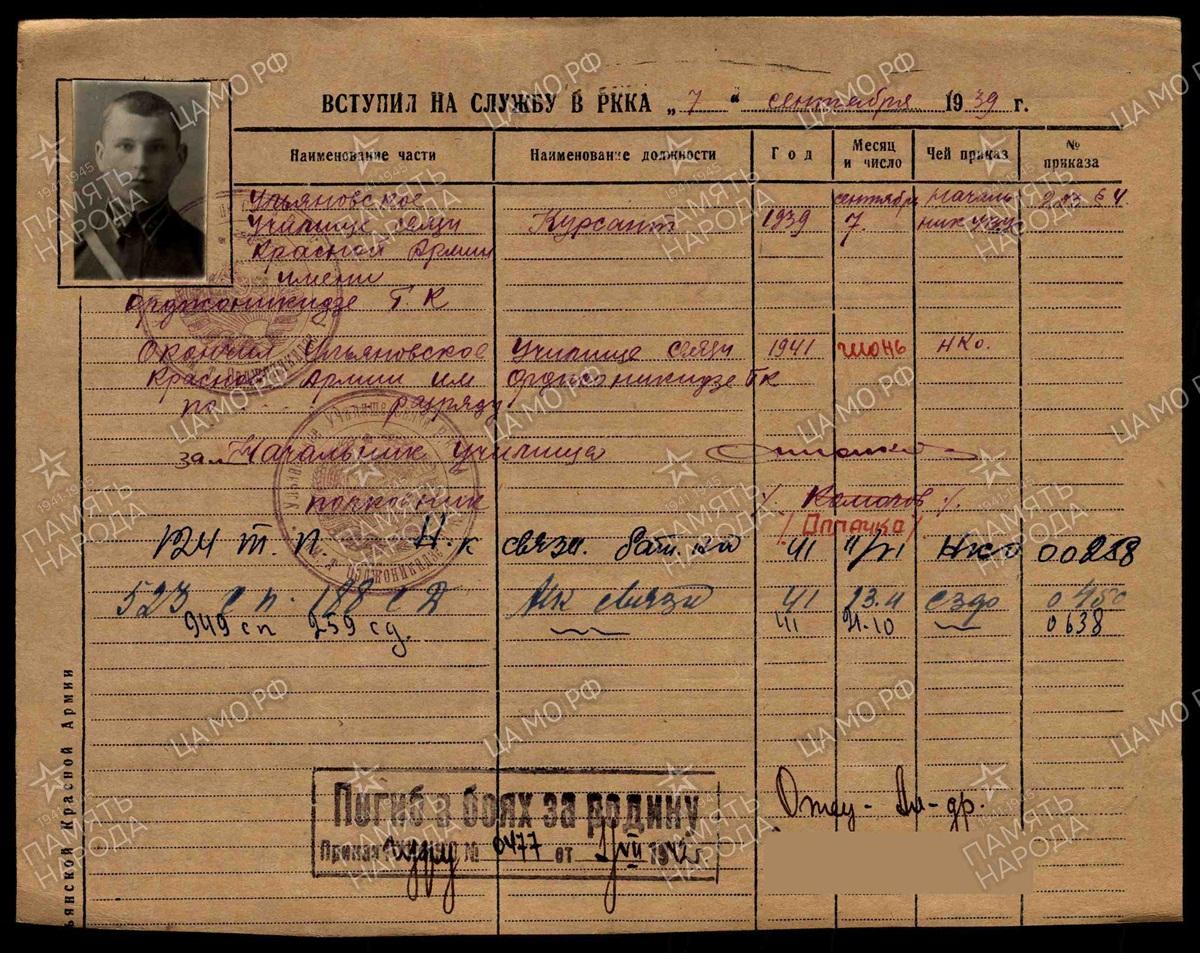 ВСТУПИЛ НА СЛУЖБУ В РККА „7“ сентября 1939 г.
Наименование части Наименование должности Год Месяц и число Чей приказ № приказа
Ульяновское сентября началь
училище связи Курсант 1939 7. ник
Красной Армии
имени
Орджоникидзе Г. К
Окончил Ульяновское Училище связи 1941 июнь НКО.
Красной Армии им Орджоникидзе ГК
по разряду
зам Начальник училища
полковник
(Оппачко)
124 т. п. Н.к связи. бат. 41 НКО
523 сп. 188 сд Нк связи 41 23.4 0450
949 сп 259 сд. 41 21.10 0638
Погиб в боях за родину
Приказ № 0477 от VII 1942 г.
Отец - Ал-др.
ьянской Красной Армии
ЦАМО РФ
1941-1945
ПАМЯТЬ НАРОДА